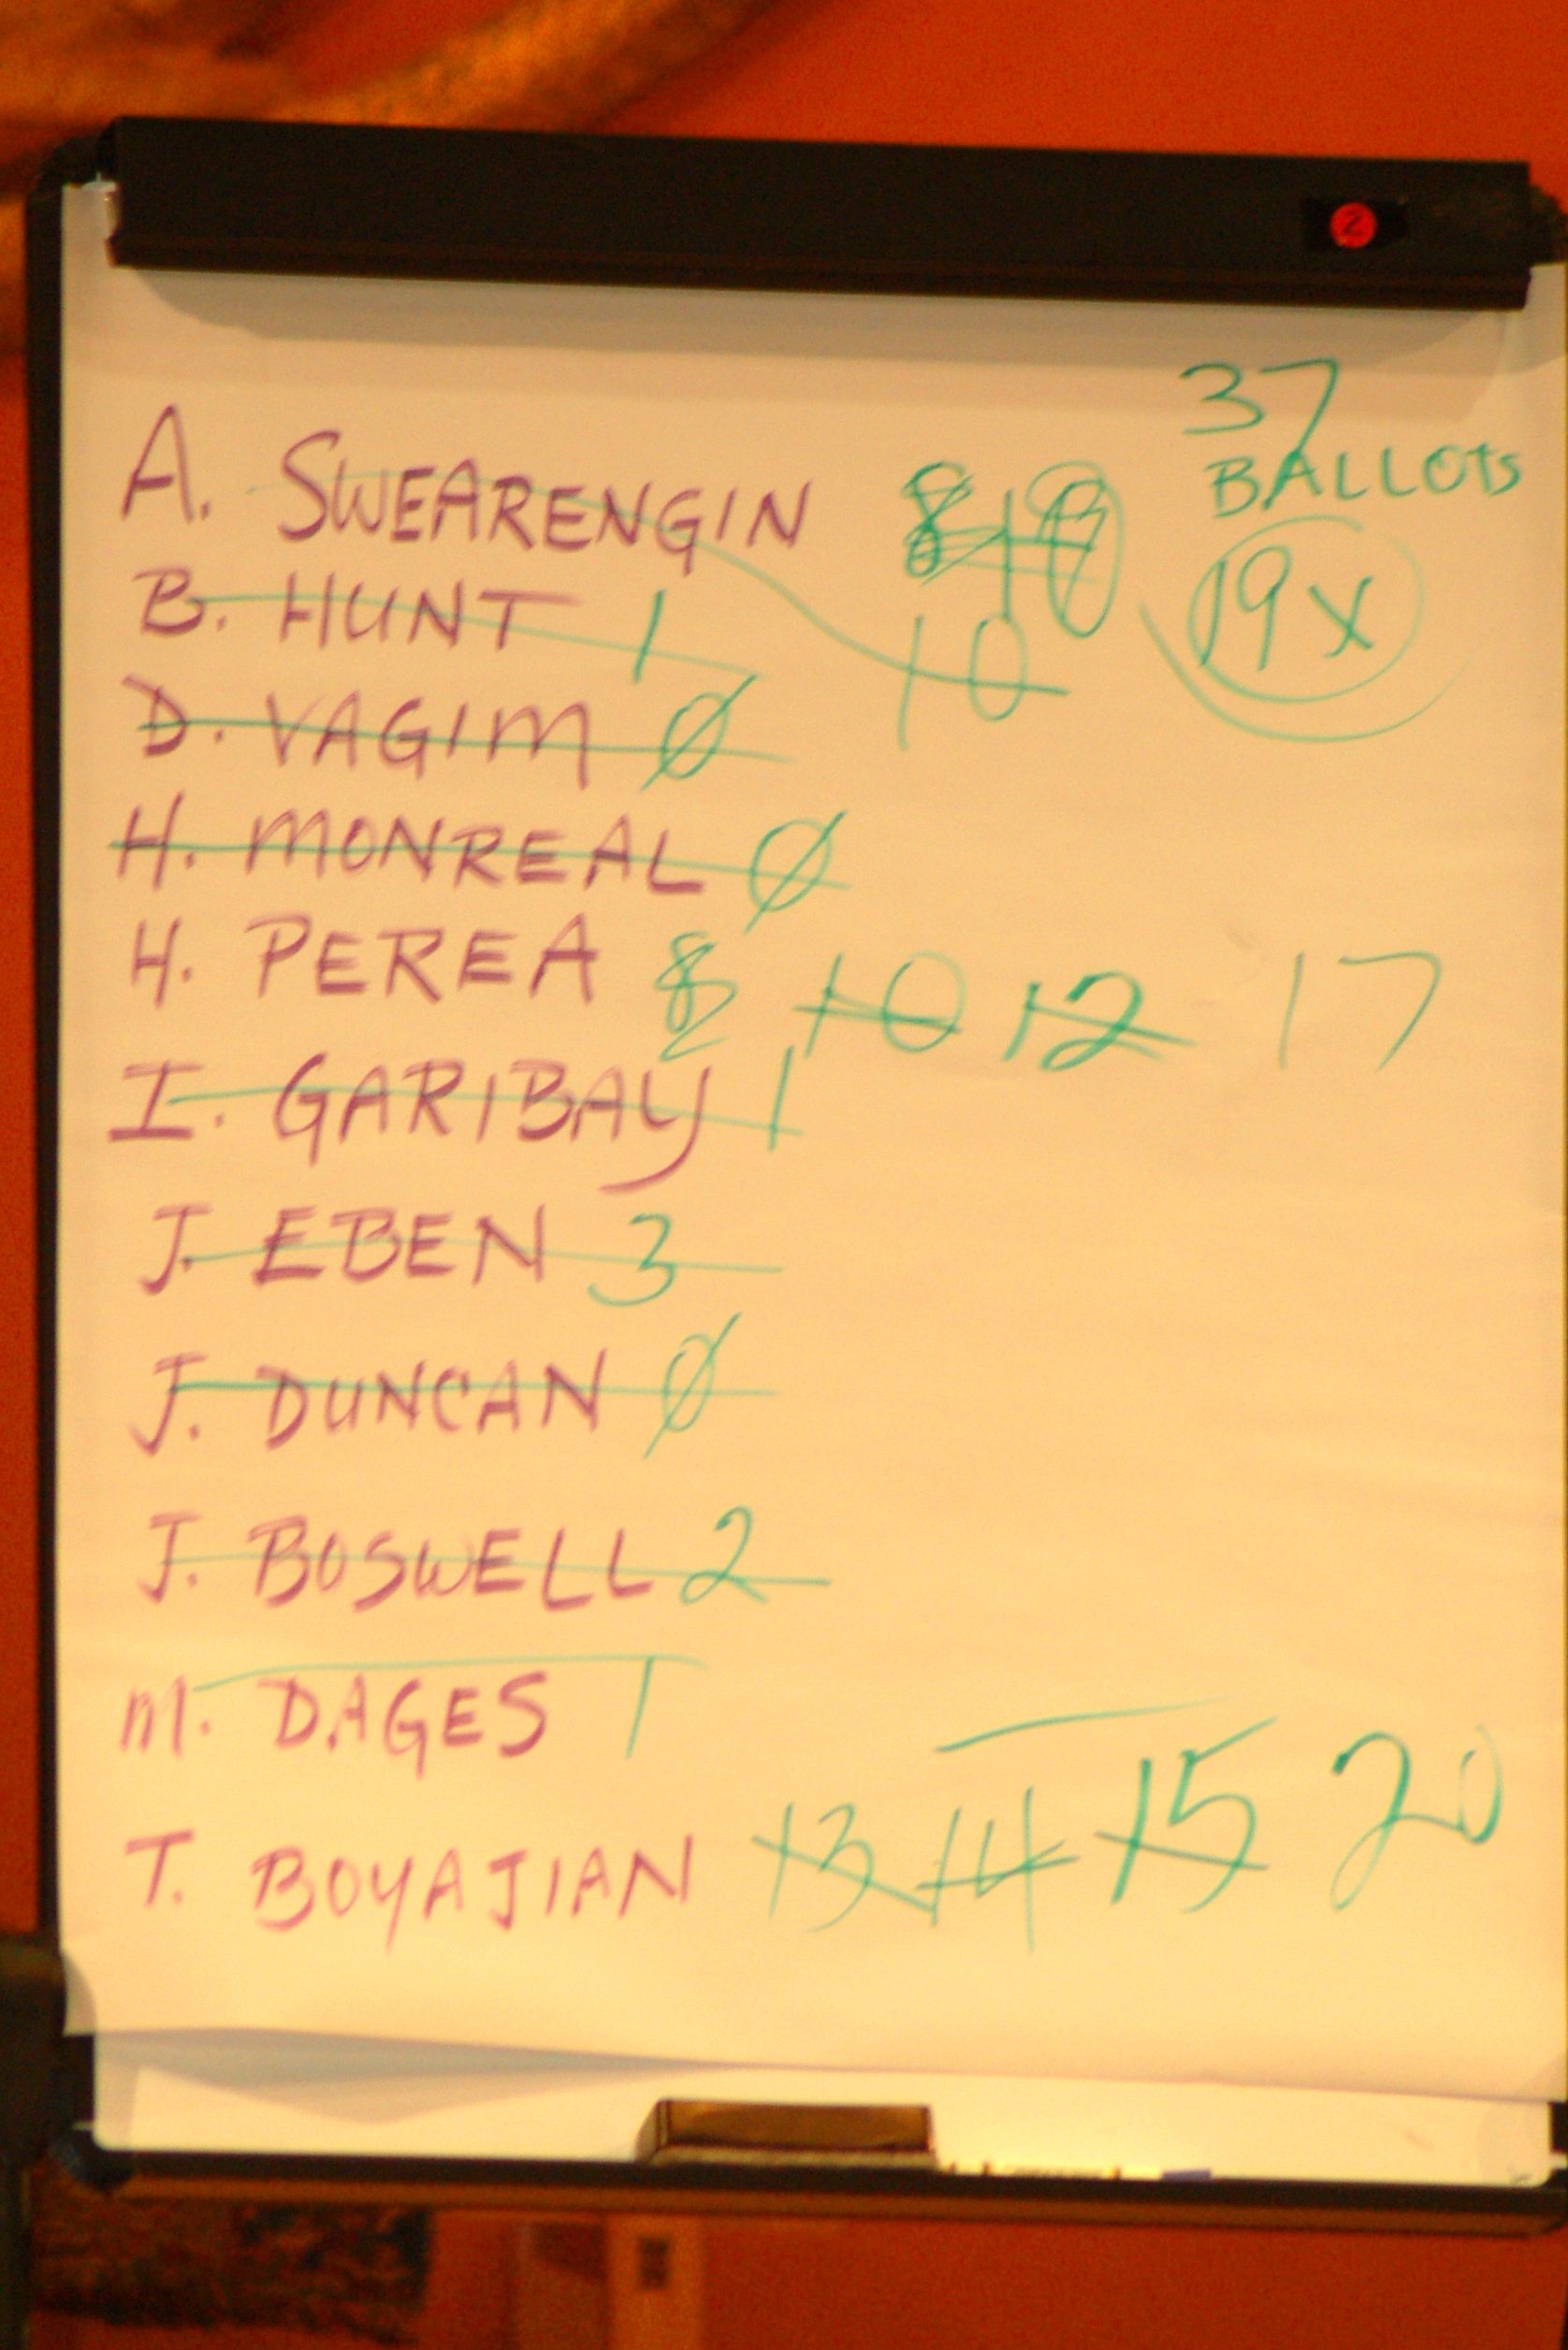 2
37
BALLOTS
A. SWEARENGIN 8
19 X
B. HUNT 1 10
D. VAGIM 0
H. MONREAL 0
H. PEREA 8 10 12 17
I. GARIBAY 1
J. EBEN 3
J. DUNCAN 0
J. BOSWELL 2
M. DAGES 1
T. BOYAJIAN 13 14 15 20